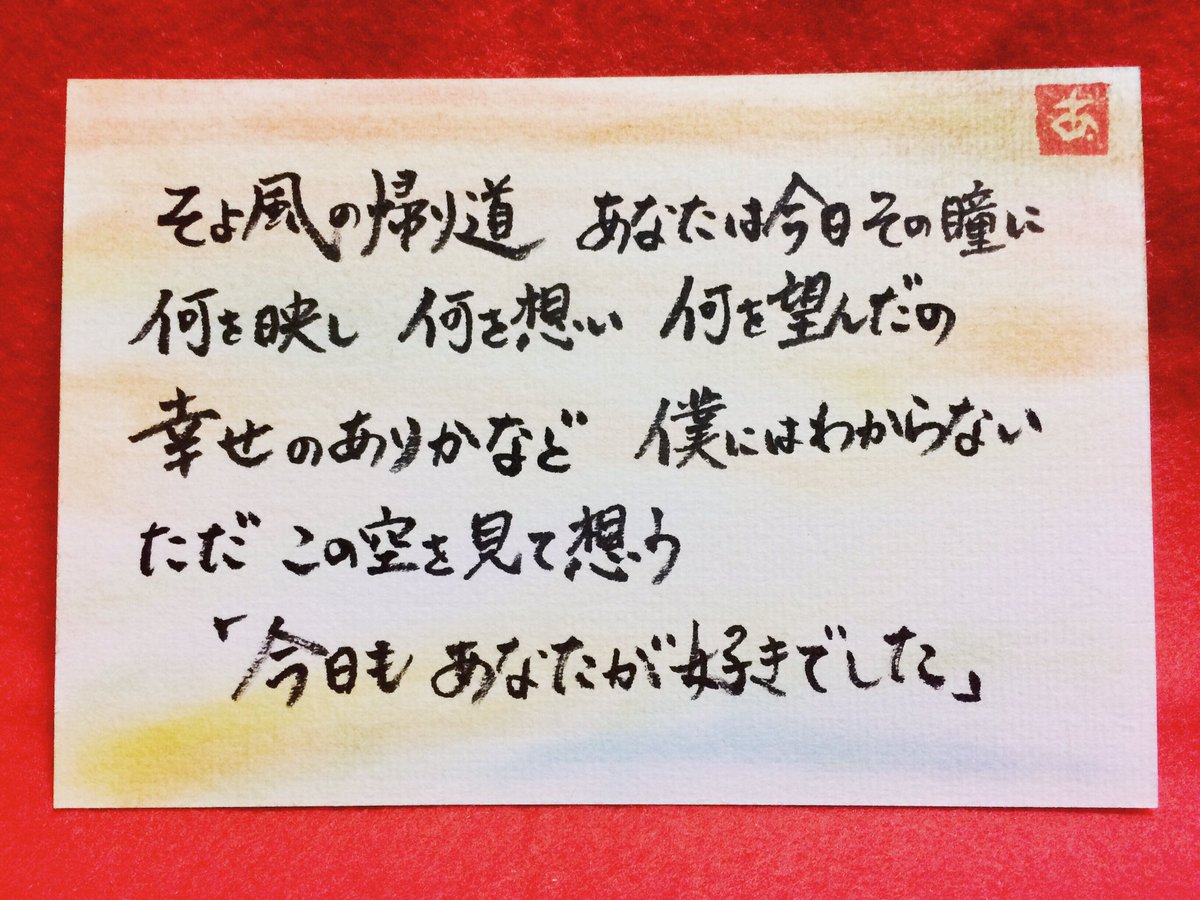 あ
そよ風の帰り道 あなたは今日その瞳に
何を映し 何を想い 何を望んだの
幸せのありかなど 僕にはわからない
ただ この空を見て想う
「今日も あなたが好きでした」